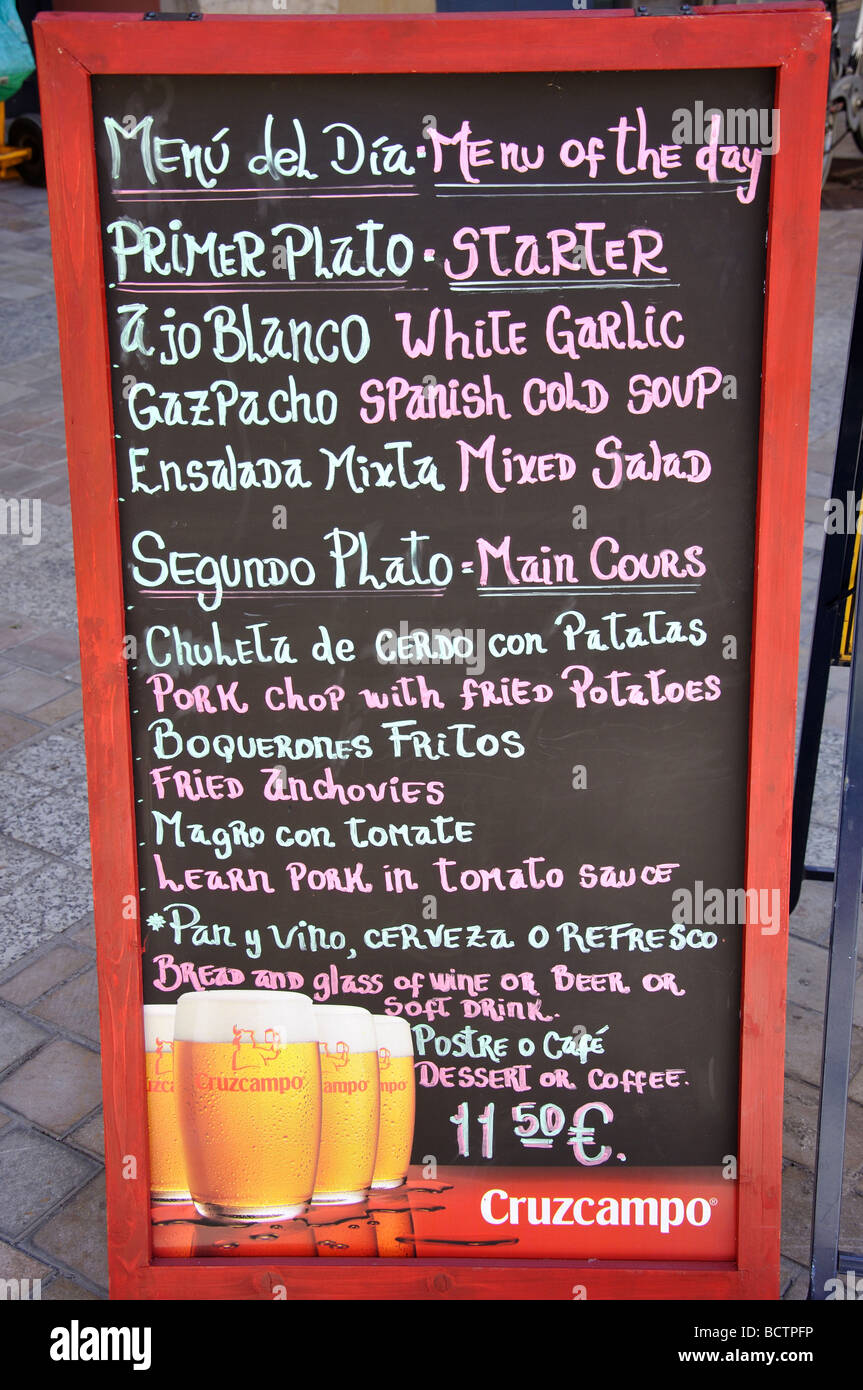 Menú del Día = Menu of the day
PRIMER PLATO = STARTER
AJO BLANCO WHITE GARLIC
GAZPACHO SPANISH COLD SOUP
ENSALADA MIXTA MIXED SALAD
SEGUNDO PLATO = MAIN COURS
CHULETA de CERDO con PATATAS
PORK CHOP with FRIED POTATOES
BOQUERONES FRITOS
FRIED ANCHOVIES
MAGRO con tomate
LEARN PORK in tomato sauce
*Pan y vino, CERVEZA O REFRESCO
BREAD and glass of wine or BEER or
SOFT DRINK.
POSTRE O CAFÉ
DESSERT OR COFFEE.
11 50 €.
Cruzcampo
Cruzcampo
Cruzcampo®
alamy
Image ID: BCTPFP
www.alamy.com